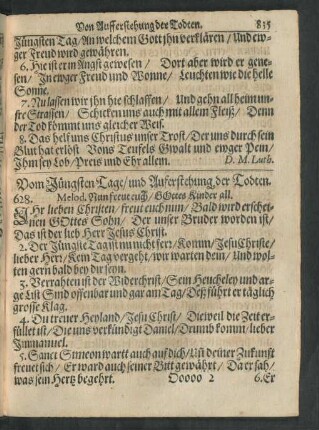 Von Aufferstehung der Todten. 835
Jüngsten Tag/ An welchem Gott jhn verklären/ Und ew-
ger Freud wird gewähren.
6. Hie ist er in Angst gewesen/ Dort aber wird er gene-
sen/ In ewger Freud und Wonne/ Leuchten wie die helle
Sonne.
7. Nu lassen wir jhn hie schlaffen/ Und gehn all heim un-
sre Strassen/ Schicken uns auch mit allem Fleiß/ Denn
der Tod kommt uns gleicher Weis.
8. Das helf uns Christus unser Trost/ Der uns durch sein
Blut hat erlöst/ Vons Teufels Gwalt und ewger Pein/
Ihm sey Lob/ Preis und Ehr allein. D. M. Luth.
Vom Jüngsten Tage/ und Auferstehung der Todten.
628. Melod. Nun freut euch/ GOttes Kinder all.
IHr lieben Christen/ freut euch nun/ Bald wird erschei-
nen GOttes Sohn/ Der unser Bruder worden ist/
Das ist der lieb HErr Jesus Christ.
2. Der Jüngste Tag ist nu nicht ferr/ Komm/ Jesu Christe/
lieber HErr/ Kein Tag vergeht/ wir warten dein/ Und wol-
ten gern bald bey dir seyn.
3. Verrahten ist der Widerchrist/ Sein Heucheley und ar-
ge List Sind offenbar und gar am Tag/ Deß führt er täglich
grosse Klag.
4. Du treuer Heyland/ Jesu Christ/ Dieweil die Zeit er-
füllet ist/ Die uns verkündigt Daniel/ Drumb komm/ lieber
Immanuel.
5. Sanct Simeon wartt auch auf dich/ Und deiner Zukunft
freuet sich/ Er ward auch seiner Bitt gewährt/ Da er sah/
was sein Hertz begehrt. Ooooo 2 6. Er